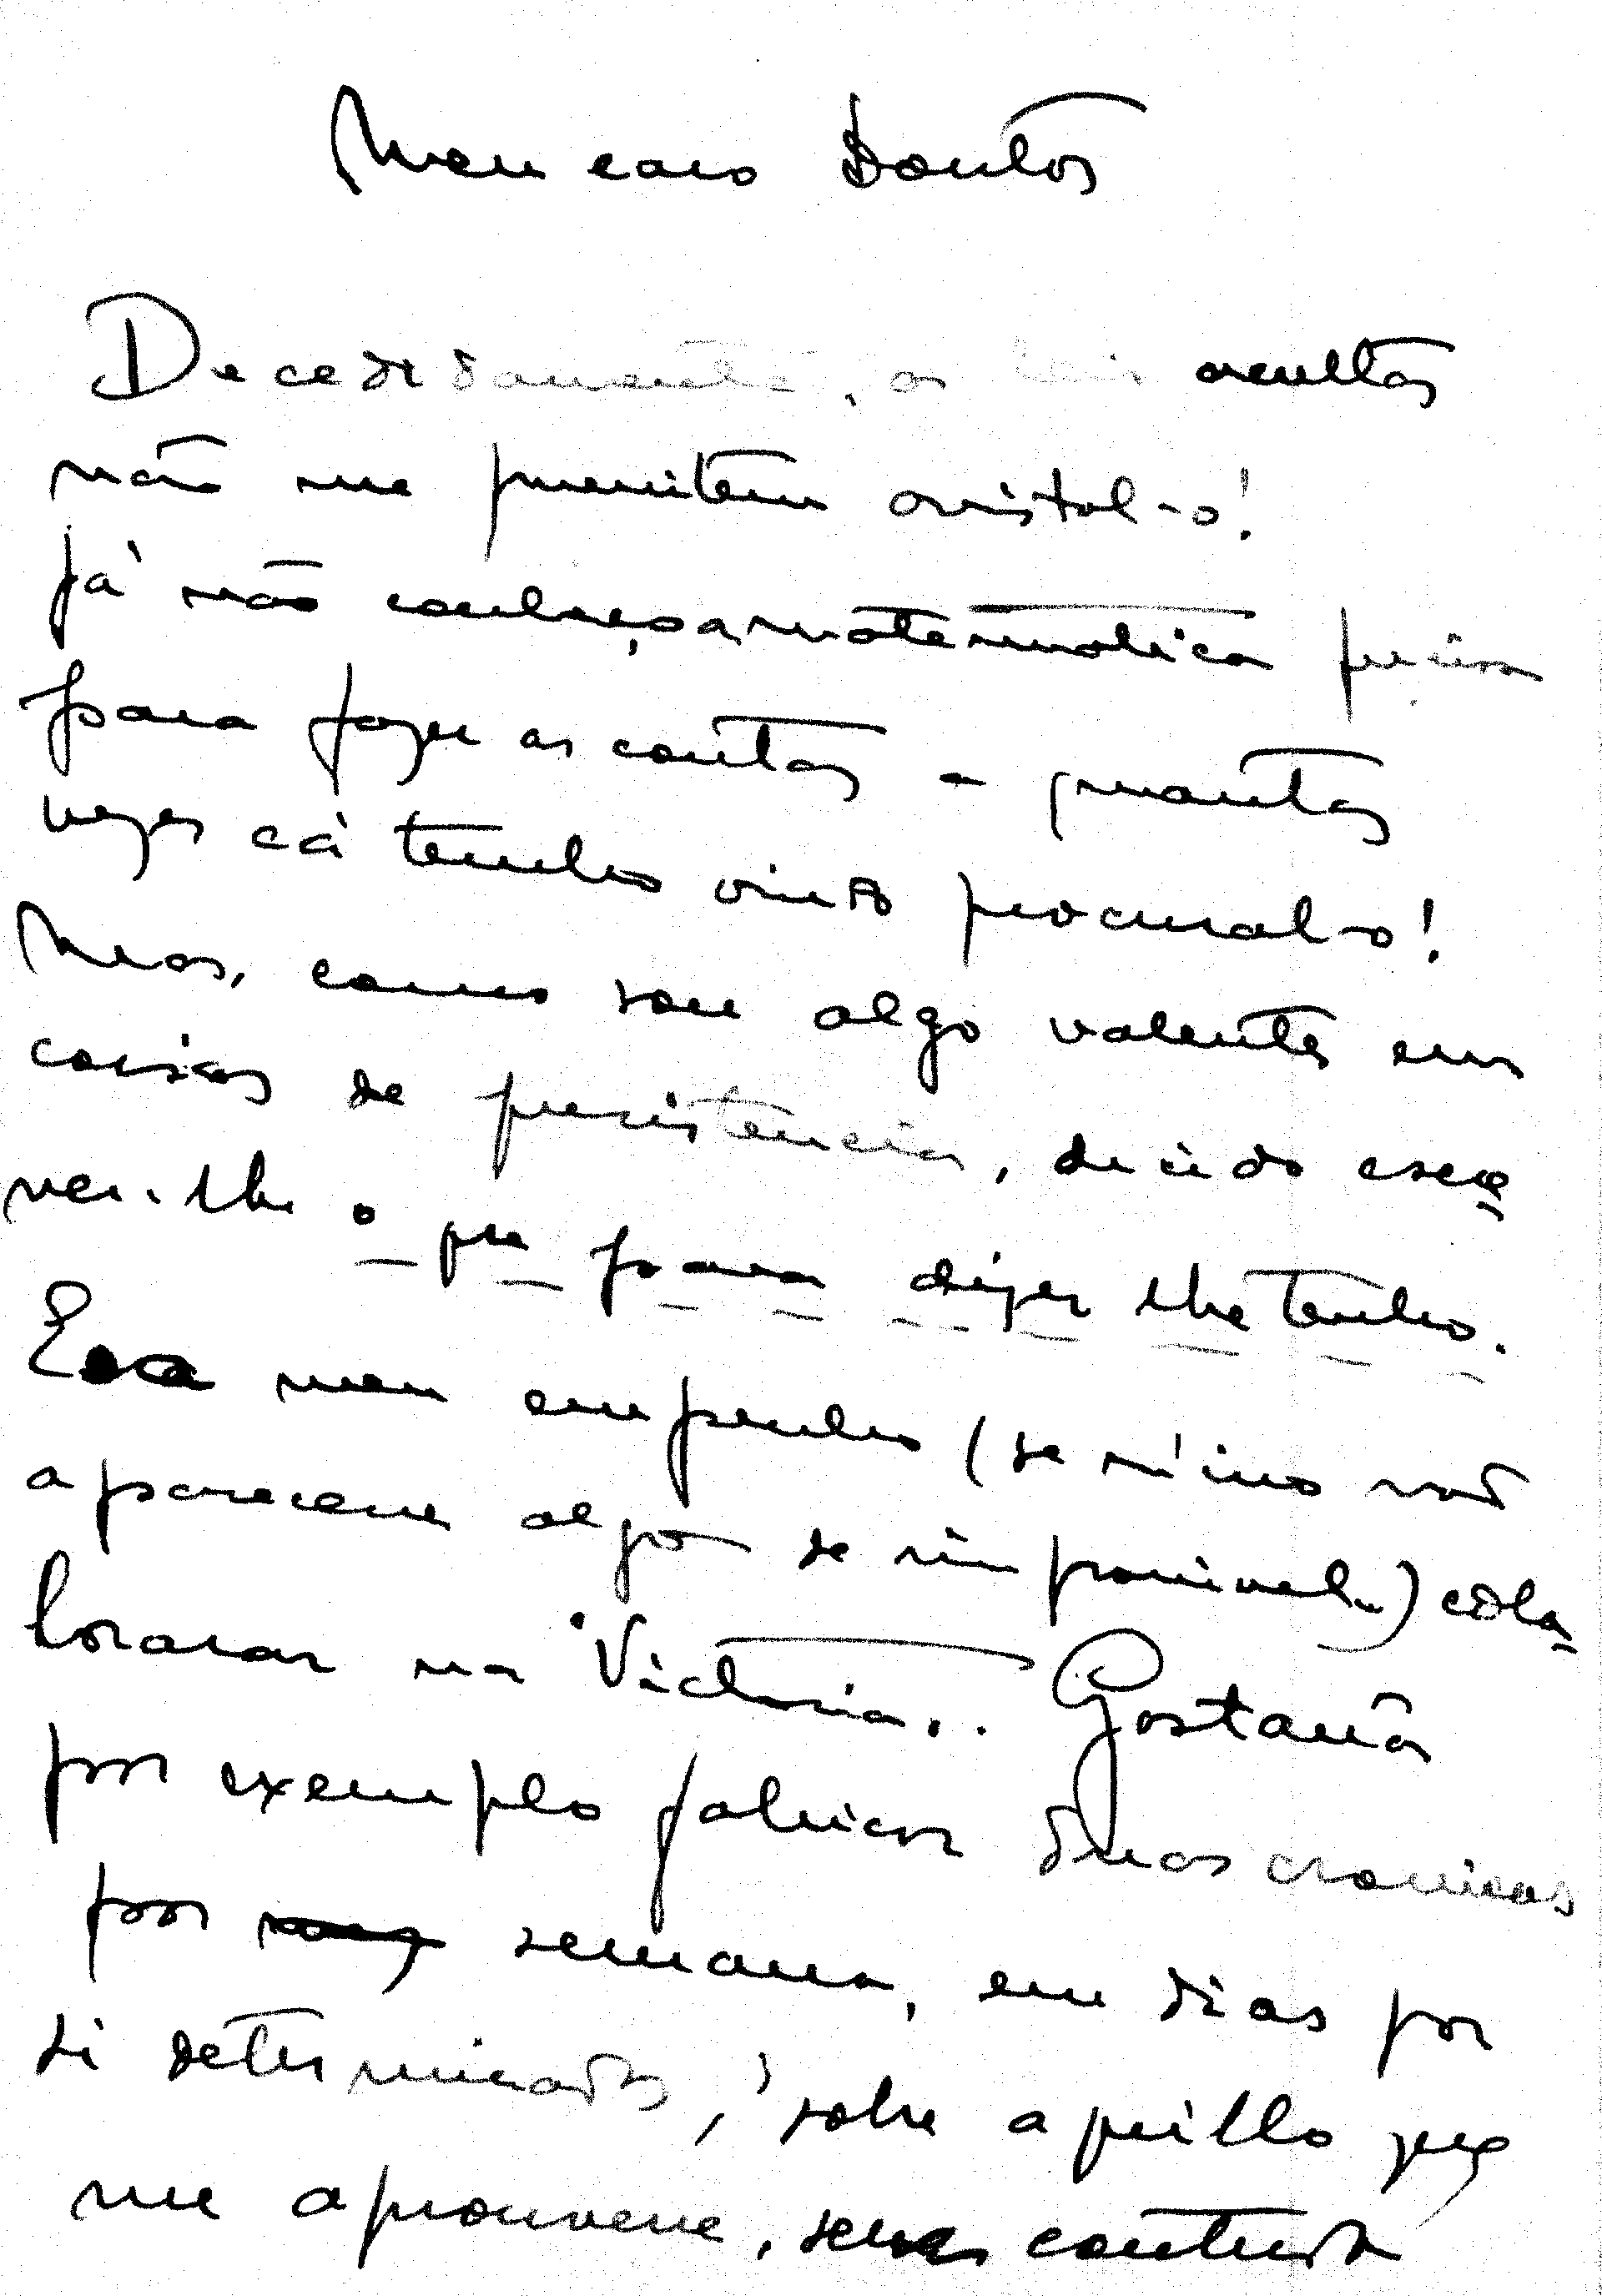 Meu caro Doutor
Decedidamente, as leis ocultas
não me premitem avistal-o!
Já não conheço a matematica precisa
para fazer as contas a quantas
vezes cá tenho vindo procural-o!
Mas, como sou algo valente em
coisas de presistencia, decido escre
ver-lhe o que para dizer lhe tenho.
Era meu empenho (se n'isso não
aparecesse algo de impossivel..) cola
borar na "Victoria.. Gostaria
por exemplo fabricar duas cronicas
por semana, em dias por
si determinados, sobre aquillo que
me aprouvesse, sem contudo